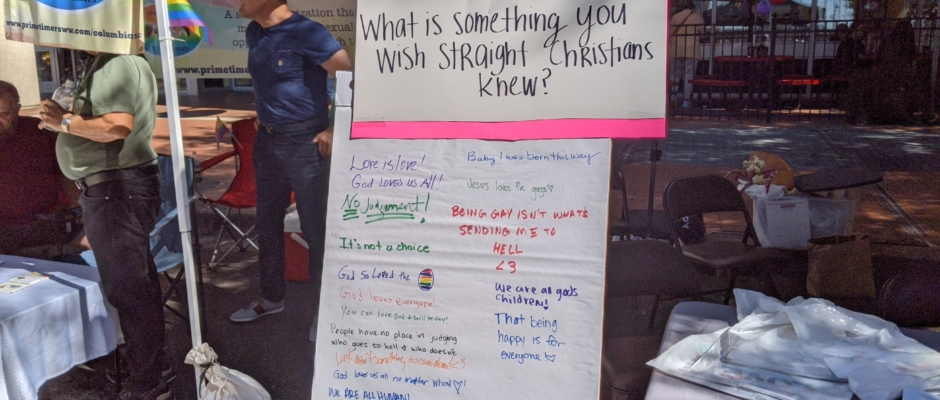 www.primetimersww.com/columbiasc
www.primetimers
What is something you
wish straight Christians
knew?
Love is love!
God loves us All!
No Judgement!
It's not a choice
God so loved the
God loves everyone!
You can love God & still be Gay!
People have no place in judging
who goes to hell & who doesn't
God loves us all no matter what ♡!
WE ARE ALL HUMAN!
Baby I was born this way
Jesus loves the gays ♡
BEING GAY ISN'T WHAT'S
SENDING ME TO
HELL
<3
we are all gods
children!
That being
happy is for
everyone ♡